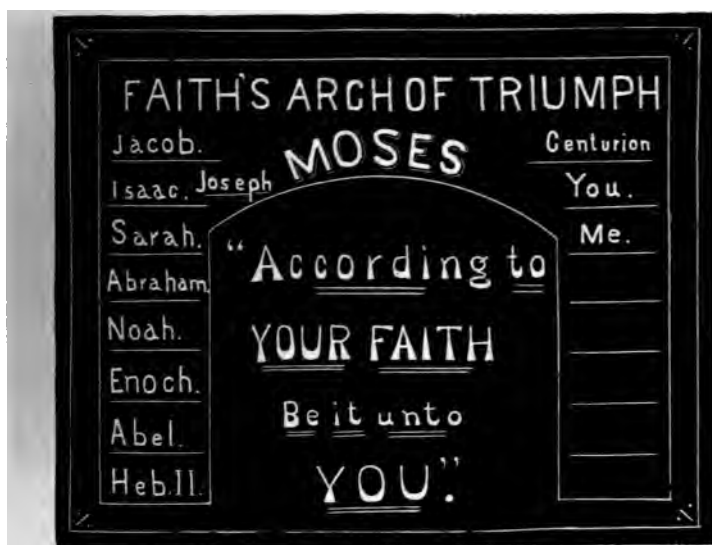 FAITH'S ARCH OF TRIUMPH
MOSES
Jacob.
Isaac. Joseph
Sarah.
Abraham.
Noah.
Enoch.
Abel.
Heb.11.
"According to
YOUR FAITH
Be it unto
YOU".
Centurion
You.
Me.